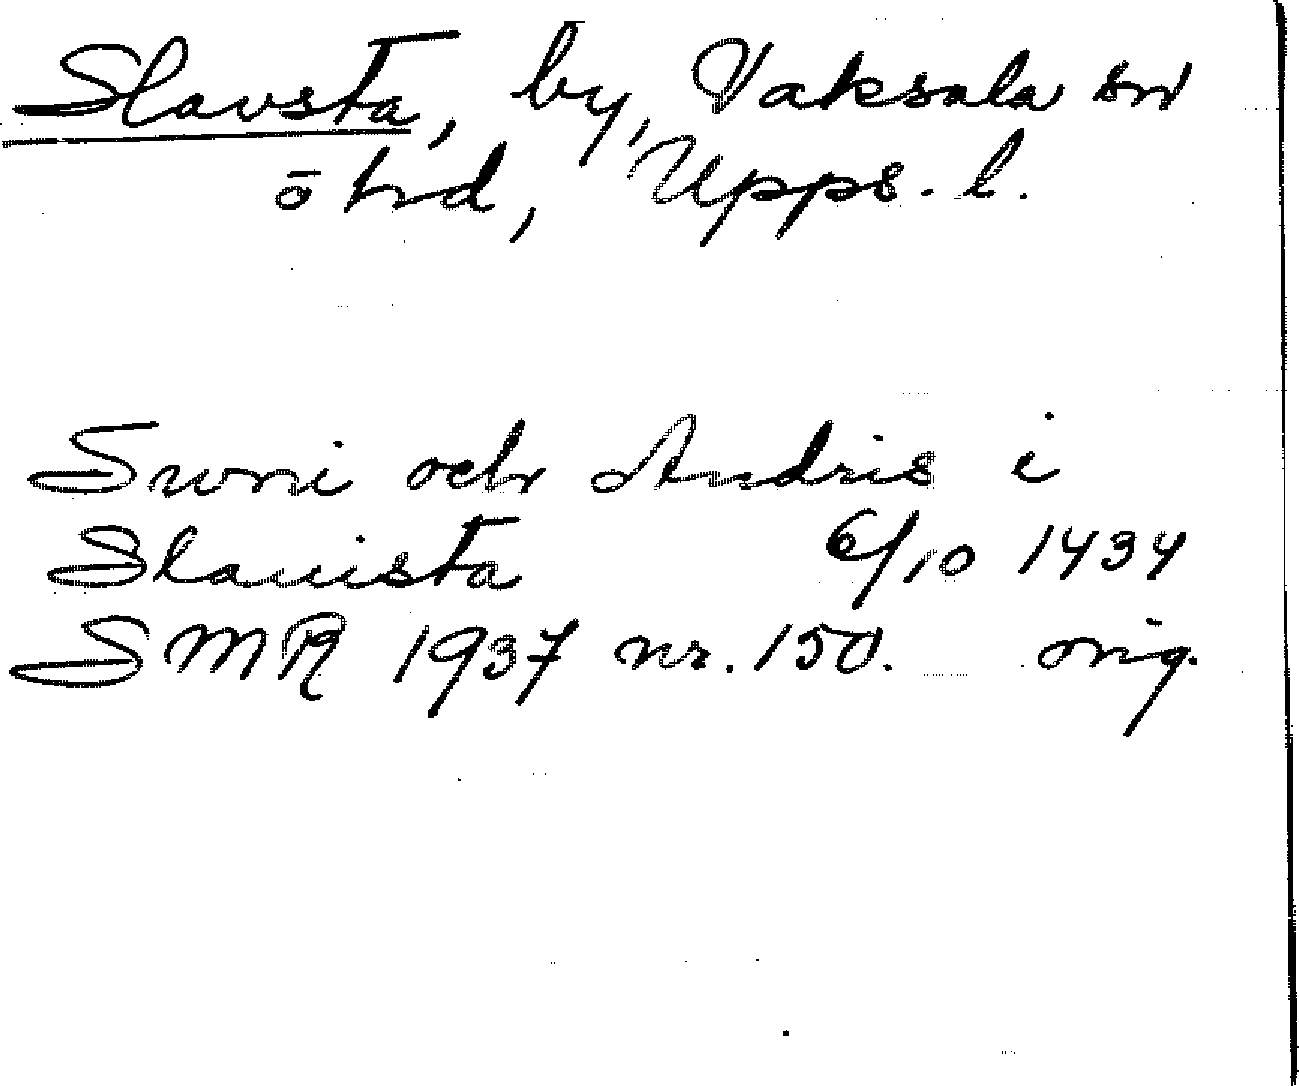 Slavsta, by, Vaksala sn
ō hd, Upps. l.
Swni och Andris i
Slauista 6/10 1434
SMR 1937 nr. 150. orig.